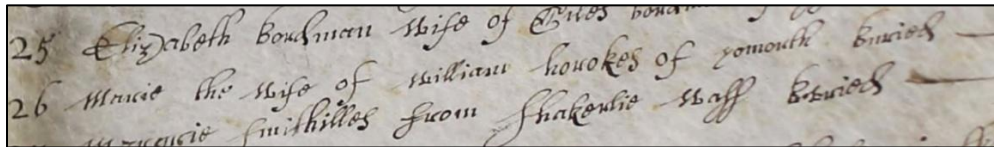 25 Elizabeth bordman wife of Giles bordman of
26 Marie the wife of william houokes of yomouth buried
Margerie smithilles from Shakerlie was buried